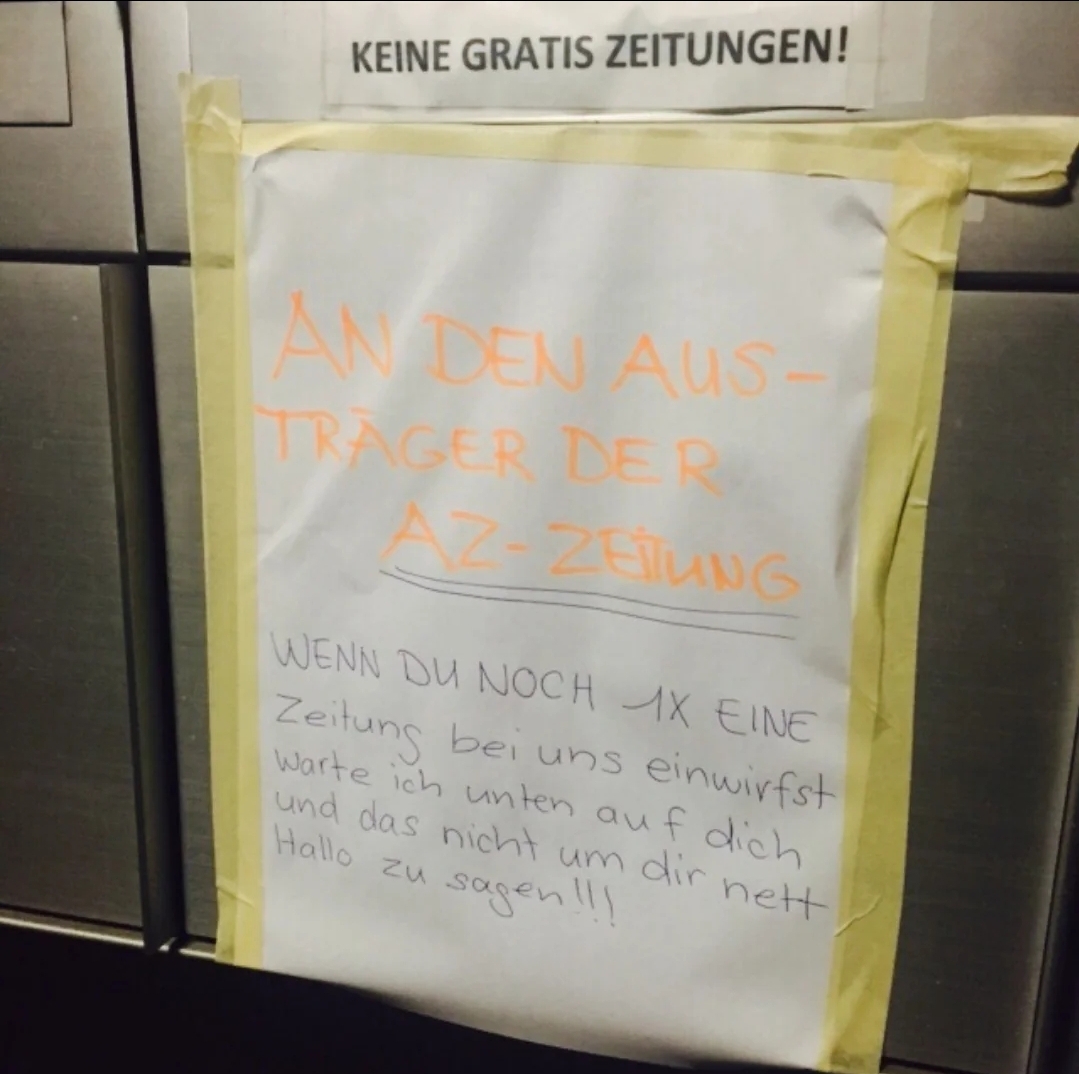 KEINE GRATIS ZEITUNGEN!
AN DEN AUS-
TRÄGER DER
AZ-ZEITUNG
WENN DU NOCH 1X EINE
Zeitung bei uns einwirfst
warte ich unten auf dich
und das nicht um dir nett
Hallo zu sagen!!!